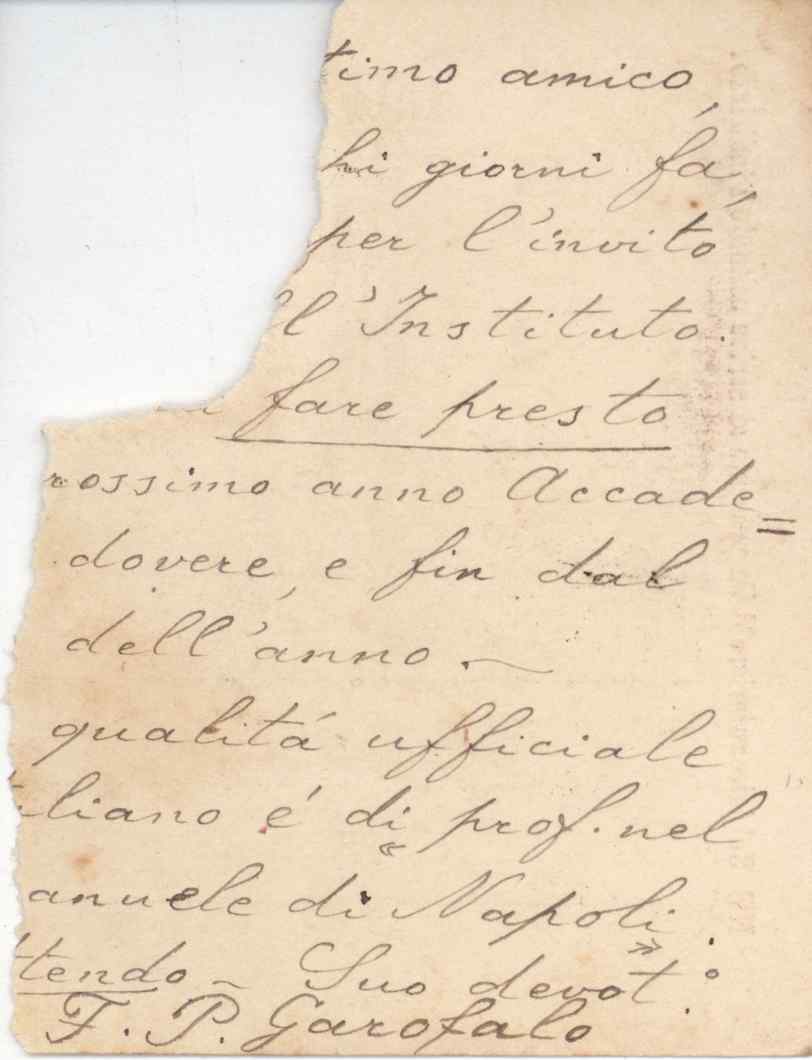 timo amico,
hi giorni fa,
per l'invito
ll'Instituto.
fare presto
rossimo anno Accade=
dovere, e fin dal
dell'anno.—
qualitá ufficiale
liano é di « prof. nel
anuele di Napoli ».
ttendo – Suo devot.°
F. P. Garofalo